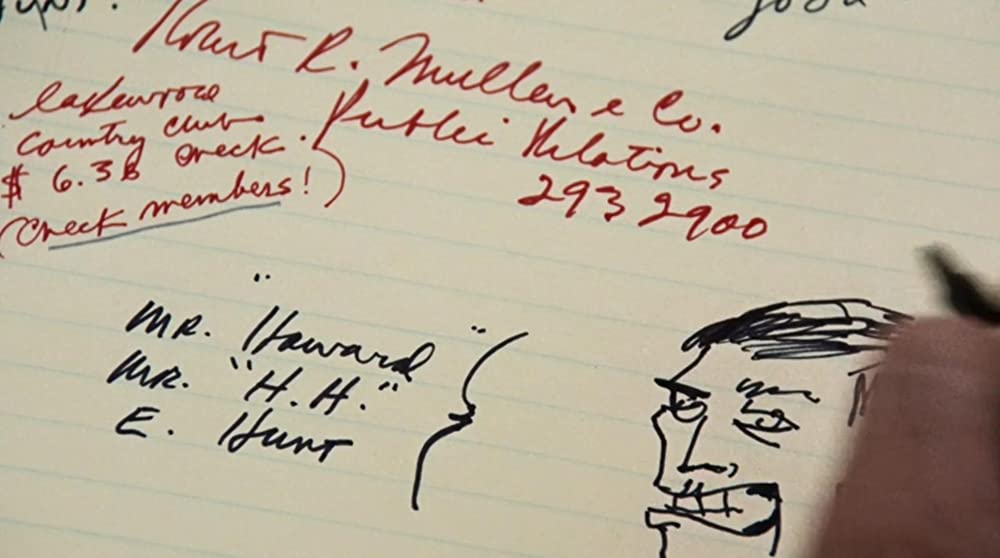 Robert R. Mullen & Co.
Public Relations
293 2900
lakewood
country club
$ 6.38 check.
(check members!)
Mr. "Howard"
Mr. "H.H."
E. Hunt